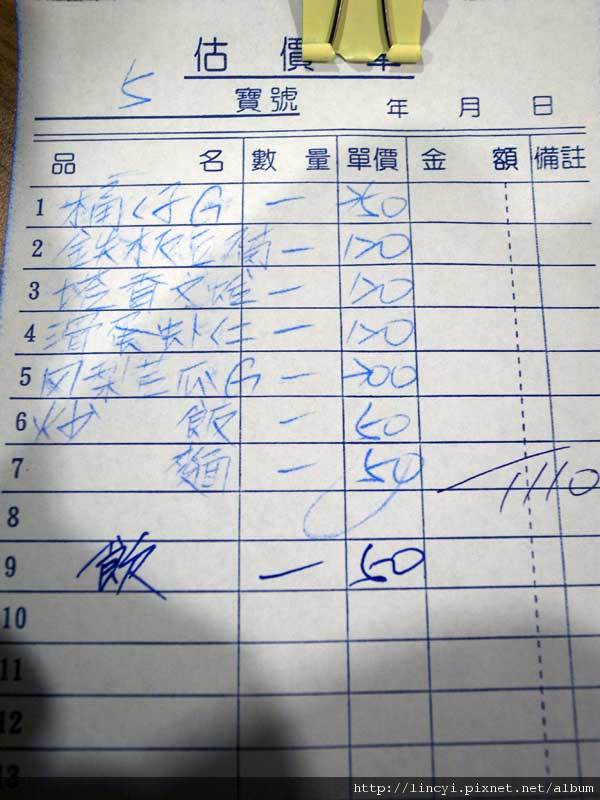 估價單
5 寶號 年 月 日
品名 數量 單價 金額 備註
1 桶仔G 一 350
2 鉄板豆腐 一 120
3 塔香文蛤 一 120
4 滑蛋虾仁 一 120
5 凤梨苦瓜G 一 300
6 炒 飯 一 50
7 麵 一 50 1110
8
9 飯 一 50
10
11
12
13
http://lincyi.pixnet.net/album